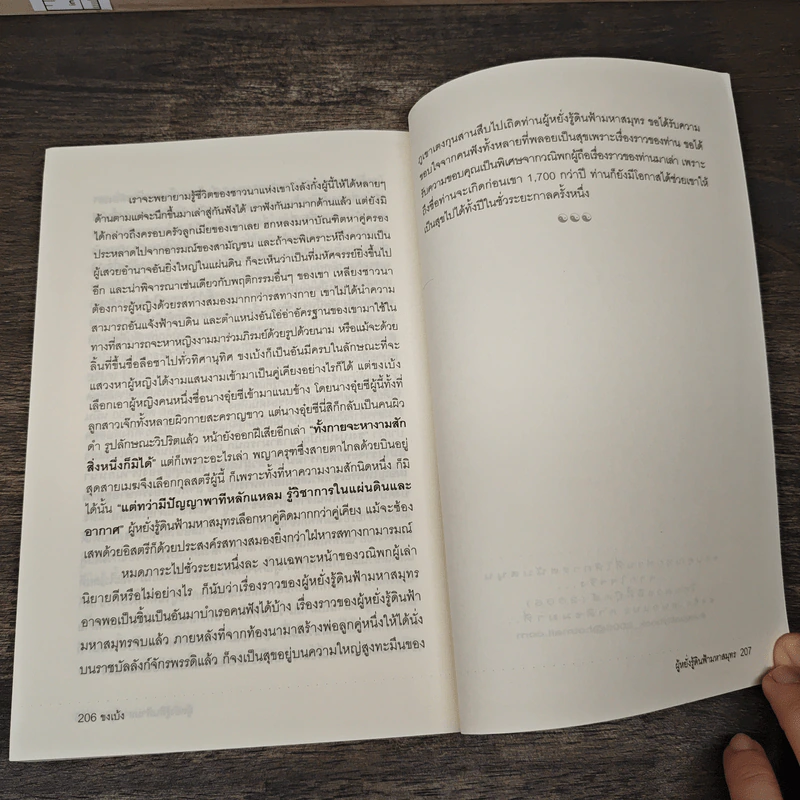 เราจะพยายามรู้ชีวิตของชาวนาแห่งเขาโงลังกั๋งผู้นี้ให้ได้หลายๆ
ด้านตามแต่จะนึกขึ้นมาเล่าสู่กันฟังได้ เราฟังกันมามากด้านแล้ว แต่ยังมิ
ได้กล่าวถึงครอบครัวลูกเมียของเขาเลย ฮกหลงมหาบัณฑิตหาคู่ครอง
ประหลาดไปจากอารมณ์ของสามัญชน และถ้าจะพิเคราะห์ถึงความเป็น
ผู้เสวยอำนาจอันยิ่งใหญ่ในแผ่นดิน ก็จะเห็นว่าเป็นที่มหัศจรรย์ยิ่งขึ้นไป
อีก และน่าพิจารณาเช่นเดียวกับพฤติกรรมอื่นๆ ของเขา เหลียงชาวนา
ต้องการผู้หญิงด้วยรสทางสมองมากกว่ารสทางกาย เขาไม่ได้นำความ
สามารถอันแจ้งฟ้าจบดิน และตำแหน่งอันโอ่อ่าอัครฐานของเขามาใช้ใน
ทางที่สามารถจะหาหญิงงามมาร่วมภิรมย์ด้วยรูปด้วยนาม หรือแม้จะด้วย
ลิ้นที่ขึ้นชื่อลือชาไปทั่วทิศานุทิศ ขงเบ้งก็เป็นอันมีครบในลักษณะที่จะ
แสวงหาผู้หญิงได้งามแสนงามเข้ามาเป็นคู่เคียงอย่างไรก็ได้ แต่ขงเบ้ง
เลือกเอาผู้หญิงคนหนึ่งชื่อนางอุ๋ยซีเข้ามาแนบข้าง โดยนางอุ๋ยซีผู้นี้ทั้งที่
ลูกสาวเจ๊กทั้งหลายผิวกายสะคราญขาว แต่นางอุ๋ยซีนี่สิก็กลับเป็นคนผิว
ดำ รูปลักษณะวิปริตแล้ว หน้ายังออกฝีเสียอีกเล่า "ทั้งกายจะหางามสัก
สิ่งหนึ่งก็มิได้" แต่ก็เพราะอะไรเล่า พญาครุฑซึ่งสายตาไกลด้วยบินอยู่
สุดสายเมฆจึงเลือกกุลสตรีผู้นี้ ก็เพราะทั้งที่หาความงามสักนิดหนึ่ง ก็มิ
ได้นั้น "แต่ทว่ามีปัญญาพาทีหลักแหลม รู้วิชาการในแผ่นดินและ
อากาศ" ผู้หยั่งรู้ดินฟ้ามหาสมุทรเลือกหาคู่คิดมากกว่าคู่เคียง แม้จะซ้อง
เสพด้วยอิสตรีก็ด้วยประสงค์รสทางสมองยิ่งกว่าใฝ่หารสทางกามารมณ์
หมดภาระไปชั่วระยะหนึ่งละ งานเฉพาะหน้าของวณิพกผู้เล่า
นิยายดีหรือไม่อย่างไร ก็นับว่าเรื่องราวของผู้หยั่งรู้ดินฟ้ามหาสมุทร
อาจพอเป็นชิ้นเป็นอันมาบำเรอคนฟังได้บ้าง เรื่องราวของผู้หยั่งรู้ดินฟ้า
มหาสมุทรจบแล้ว ภายหลังที่จากท้องนามาสร้างพ่อลูกคู่หนึ่งให้ได้นั่ง
บนราชบัลลังก์จักรพรรดิแล้ว ก็จงเป็นสุขอยู่บนความใหญ่สูงทะมึนของ
206 ขงเบ้ง
ภูเขาเตงกุนสานสืบไปเถิดท่านผู้หยั่งรู้ดินฟ้ามหาสมุทร ขอได้รับความ
ขอบใจจากคนฟังทั้งหลายที่พลอยเป็นสุขเพราะเรื่องราวของท่าน ขอได้
รับความขอบคุณเป็นพิเศษจากวณิพกผู้ถือเรื่องราวของท่านมาเล่า เพราะ
ถึงชื่อท่านจะเกิดก่อนเขา 1,700 กว่าปี ท่านก็ยังมีโอกาสได้ช่วยเขาให้
เป็นสุขไปได้ทั้งปีในชั่วระยะกาลครั้งหนึ่ง
ผู้หยั่งรู้ดินฟ้ามหาสมุทร 207